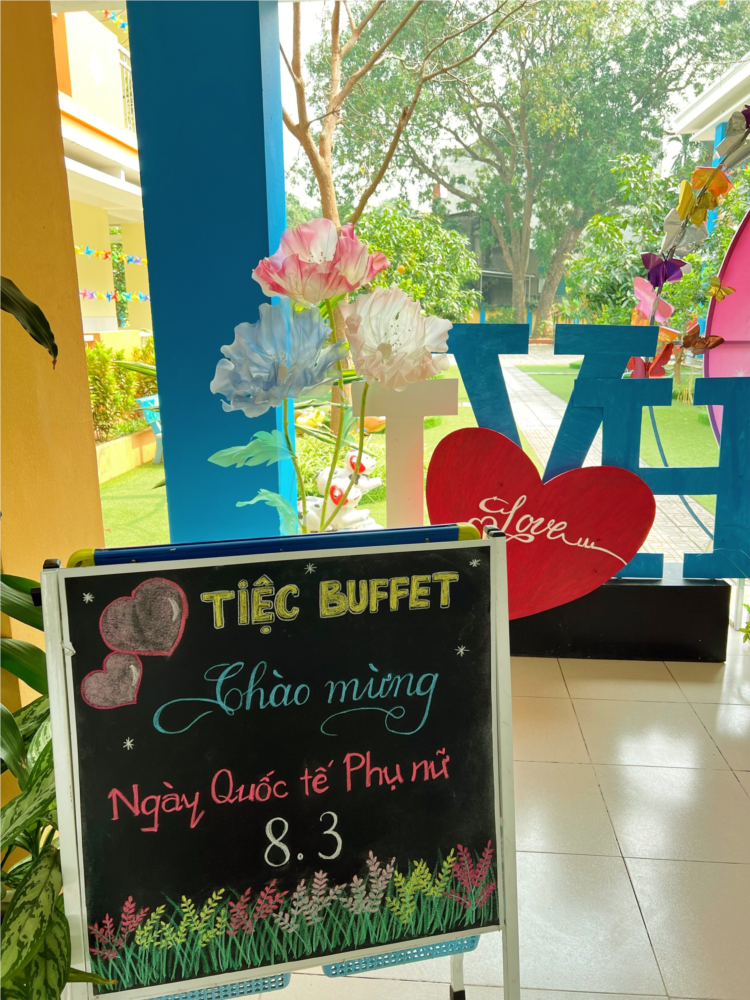 TIỆC BUFFET
Chào mừng
Ngày Quốc tế Phụ nữ
8.3
Love